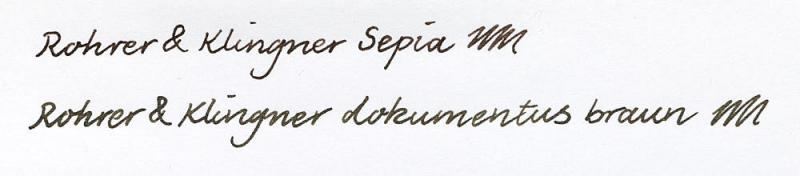 Rohrer & Klingner Sepia
Rohrer & Klingner dokumentus braun